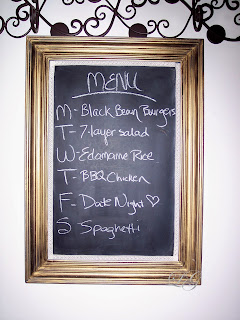 MENU
M- Black Bean Burgers
T- 7-layer salad
W- Edamame Rice
T- BBQ Chicken
F- Date Night ♡
S- Spaghetti